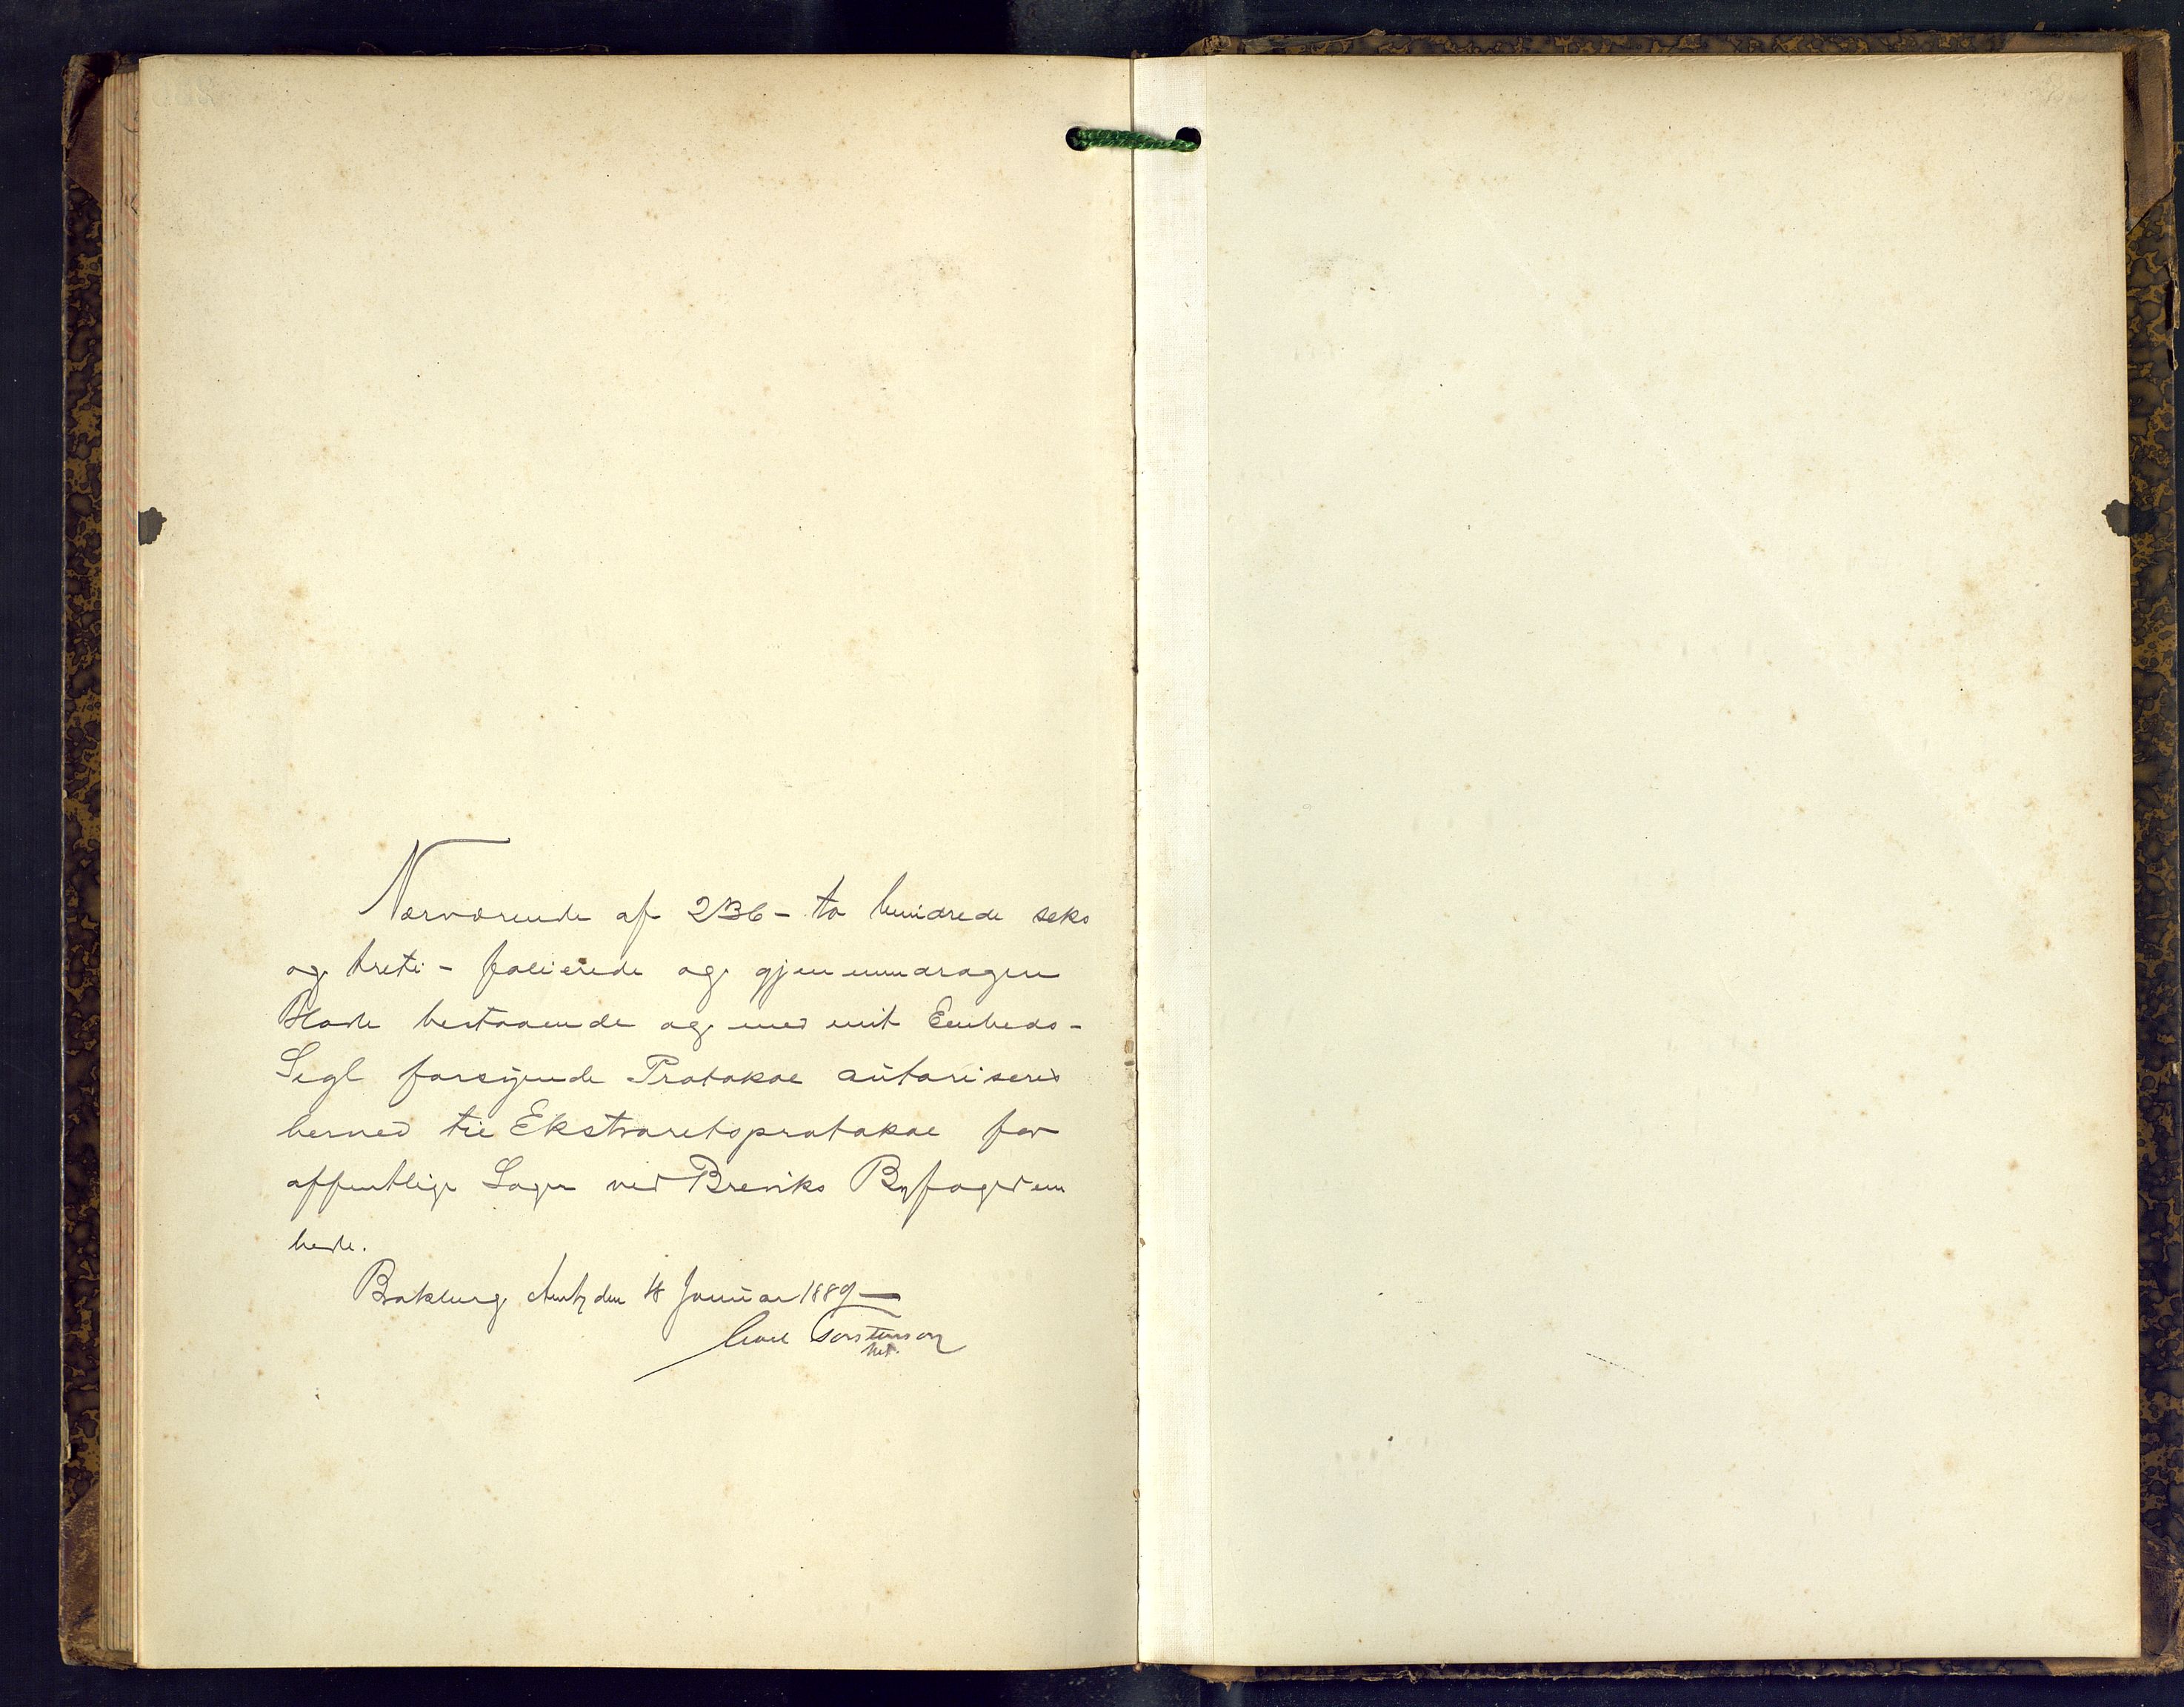 Nærværende af 236 - to hundrede seks
og treti - folierede og gjennemdragen
Blade bestaaende og med mit Embeds-
Segl forsynede Protokol autoriseres
herved til Ekstraretsprotokol for
offentlige Sager ved Breviks Byfogedem
bede.
Bratsberg Amt, den 18 Januar 1889
Carl Torstenson